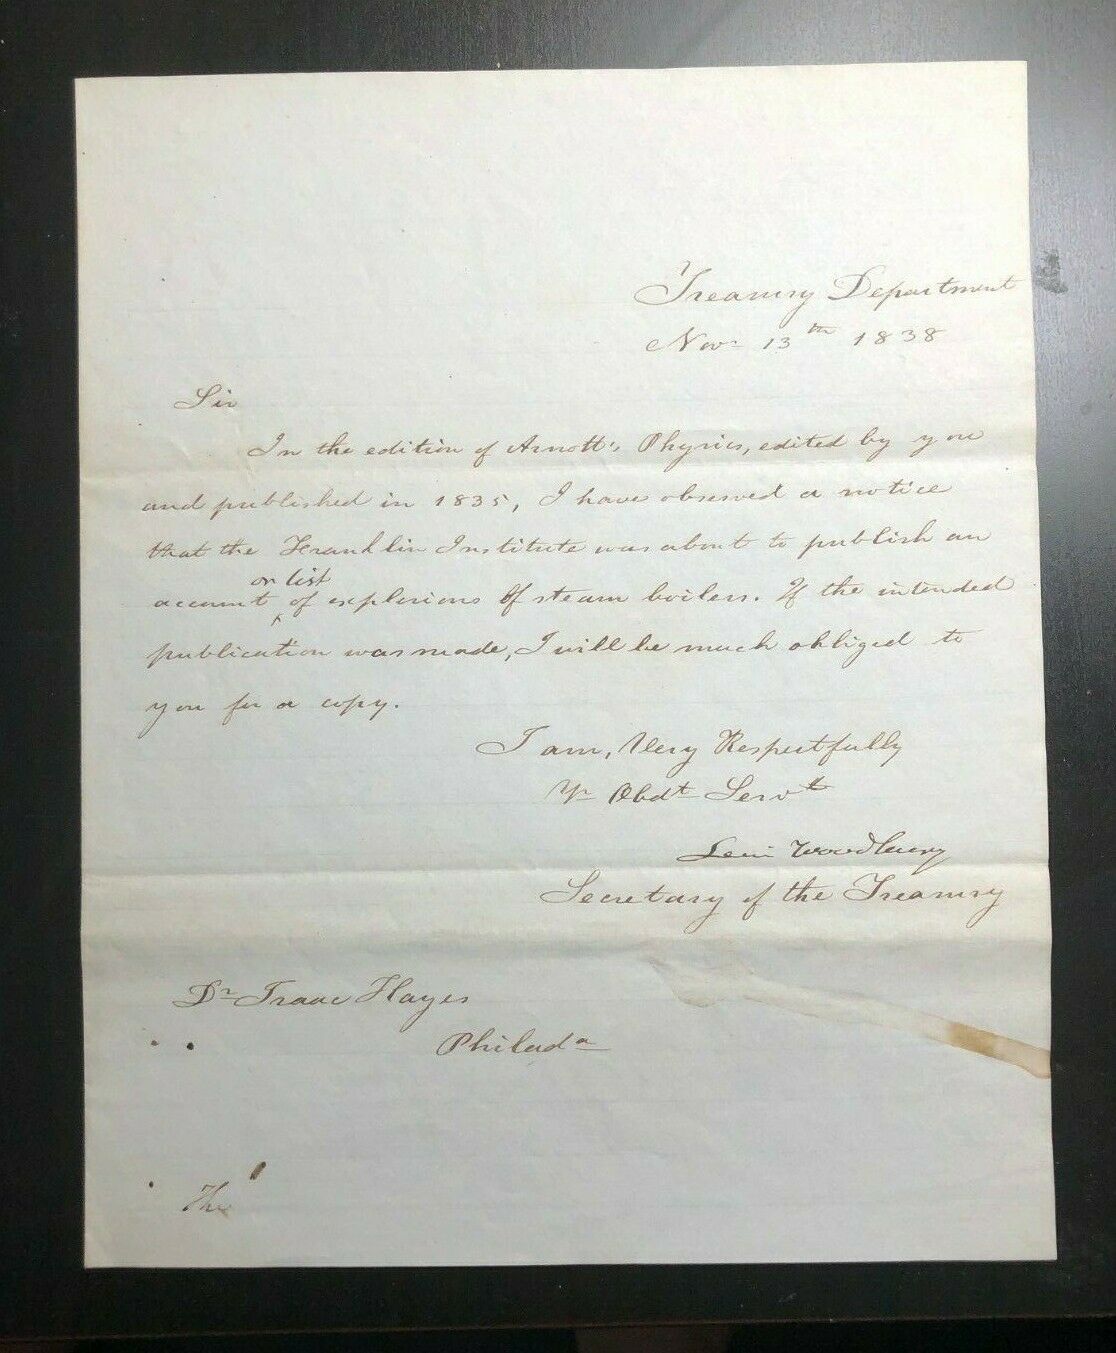 Treasury Department
Nov. 13th 1838
Sir
In the edition of Arnott's Physics, edited by you
and published in 1835, I have observed a notice
that the Franklin Institute was about to publish an
or list
account of explosions of steam boilers. If the intended
publication was made, I will be much obliged to
you for a copy.
I am, Very Respectfully
Yr Obdt Servt
Levi Woodbury
Secretary of the Treasury
Dr Isaac Hayes
Philada
The